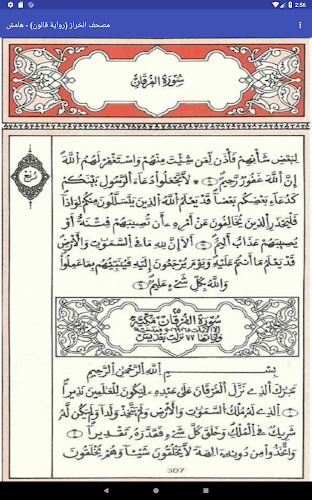 2:56
مصحف الخراز (رواية قالون) - هامش
سُورَةُ الفُرْقَانِ
لِبَعْضِ شَأْنِهِمْ فَأْذَن لِّمَن شِئْتَ مِنْهُمْ وَاسْتَغْفِرْ لَهُمُ اللَّهَ
إِنَّ اللَّهَ غَفُورٌ رَّحِيمٌ لَا تَجْعَلُوا دُعَاءَ الرَّسُولِ بَيْنَكُمْ
رُبْع
كَدُعَاءِ بَعْضِكُم بَعْضاً قَدْ يَعْلَمُ اللَّهُ الَّذِينَ يَتَسَلَّلُونَ مِنكُمْ لِوَاذاً
فَلْيَحْذَرِ الَّذِينَ يُخَالِفُونَ عَنْ أَمْرِهِ أَن تُصِيبَهُمْ فِتْنَةٌ أَوْ
يُصِيبَهُمْ عَذَابٌ أَلِيمٌ أَلَا إِنَّ لِلهِ مَا فِي السَّمَاوَاتِ وَالْأَرْضِ
قَدْ يَعْلَمُ مَا أَنتُمْ عَلَيْهِ وَيَوْمَ يُرْجَعُونَ إِلَيْهِ فَيُنَبِّئُهُم بِمَا عَمِلُوا
وَاللَّهُ بِكُلِّ شَيْءٍ عَلِيمٌ
سُورَةُ الفُرْقَانِ مَكِّيَّة
بِسْمِ اللَّهِ الرَّحْمَنِ الرَّحِيمِ
تَبَارَكَ الَّذِي نَزَّلَ الْفُرْقَانَ عَلَى عَبْدِهِ لِيَكُونَ لِلْعَالَمِينَ نَذِيراً
الَّذِي لَهُ مُلْكُ السَّمَاوَاتِ وَالْأَرْضِ وَلَمْ يَتَّخِذْ وَلَداً وَلَمْ يَكُن لَّهُ
شَرِيكٌ فِي الْمُلْكِ وَخَلَقَ كُلَّ شَيْءٍ فَقَدَّرَهُ تَقْدِيراً
وَاتَّخَذُوا مِن دُونِهِ آلِهَةً لَّا يَخْلُقُونَ شَيْئاً وَهُمْ يُخْلَقُونَ
307